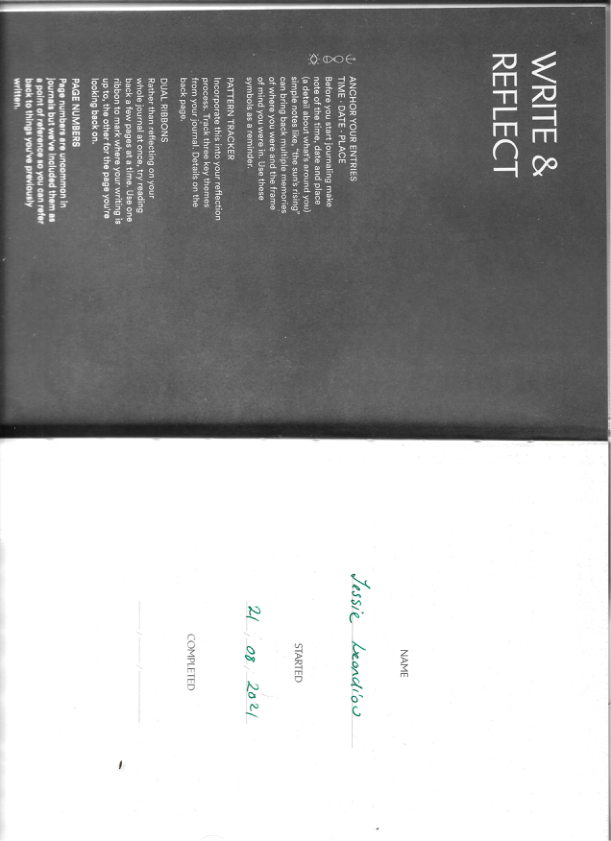 WRITE &
REFLECT
ANCHOR YOUR ENTRIES
TIME · DATE · PLACE
Before you start journaling make
note of the time, date and place
(a detail about what's around you)
simple notes like, "the sun's rising"
can bring back multiple memories
of where you were and the frame
of mind you were in. Use these
symbols as a reminder.
PATTERN TRACKER
Incorporate this into your reflection
process. Track three key themes
from your journal. Details on the
back page.
DUAL RIBBONS
Rather than reflecting on your
whole journal at once, try reading
back a few pages at a time. Use one
ribbon to mark where your writing is
up to, the other for the page you're
looking back on.
PAGE NUMBERS
Page numbers are uncommon in
journals but we've included them as
a point of reference so you can refer
back to things you've previously
written.
NAME
Jessie
STARTED
21, 08, 2021
COMPLETED